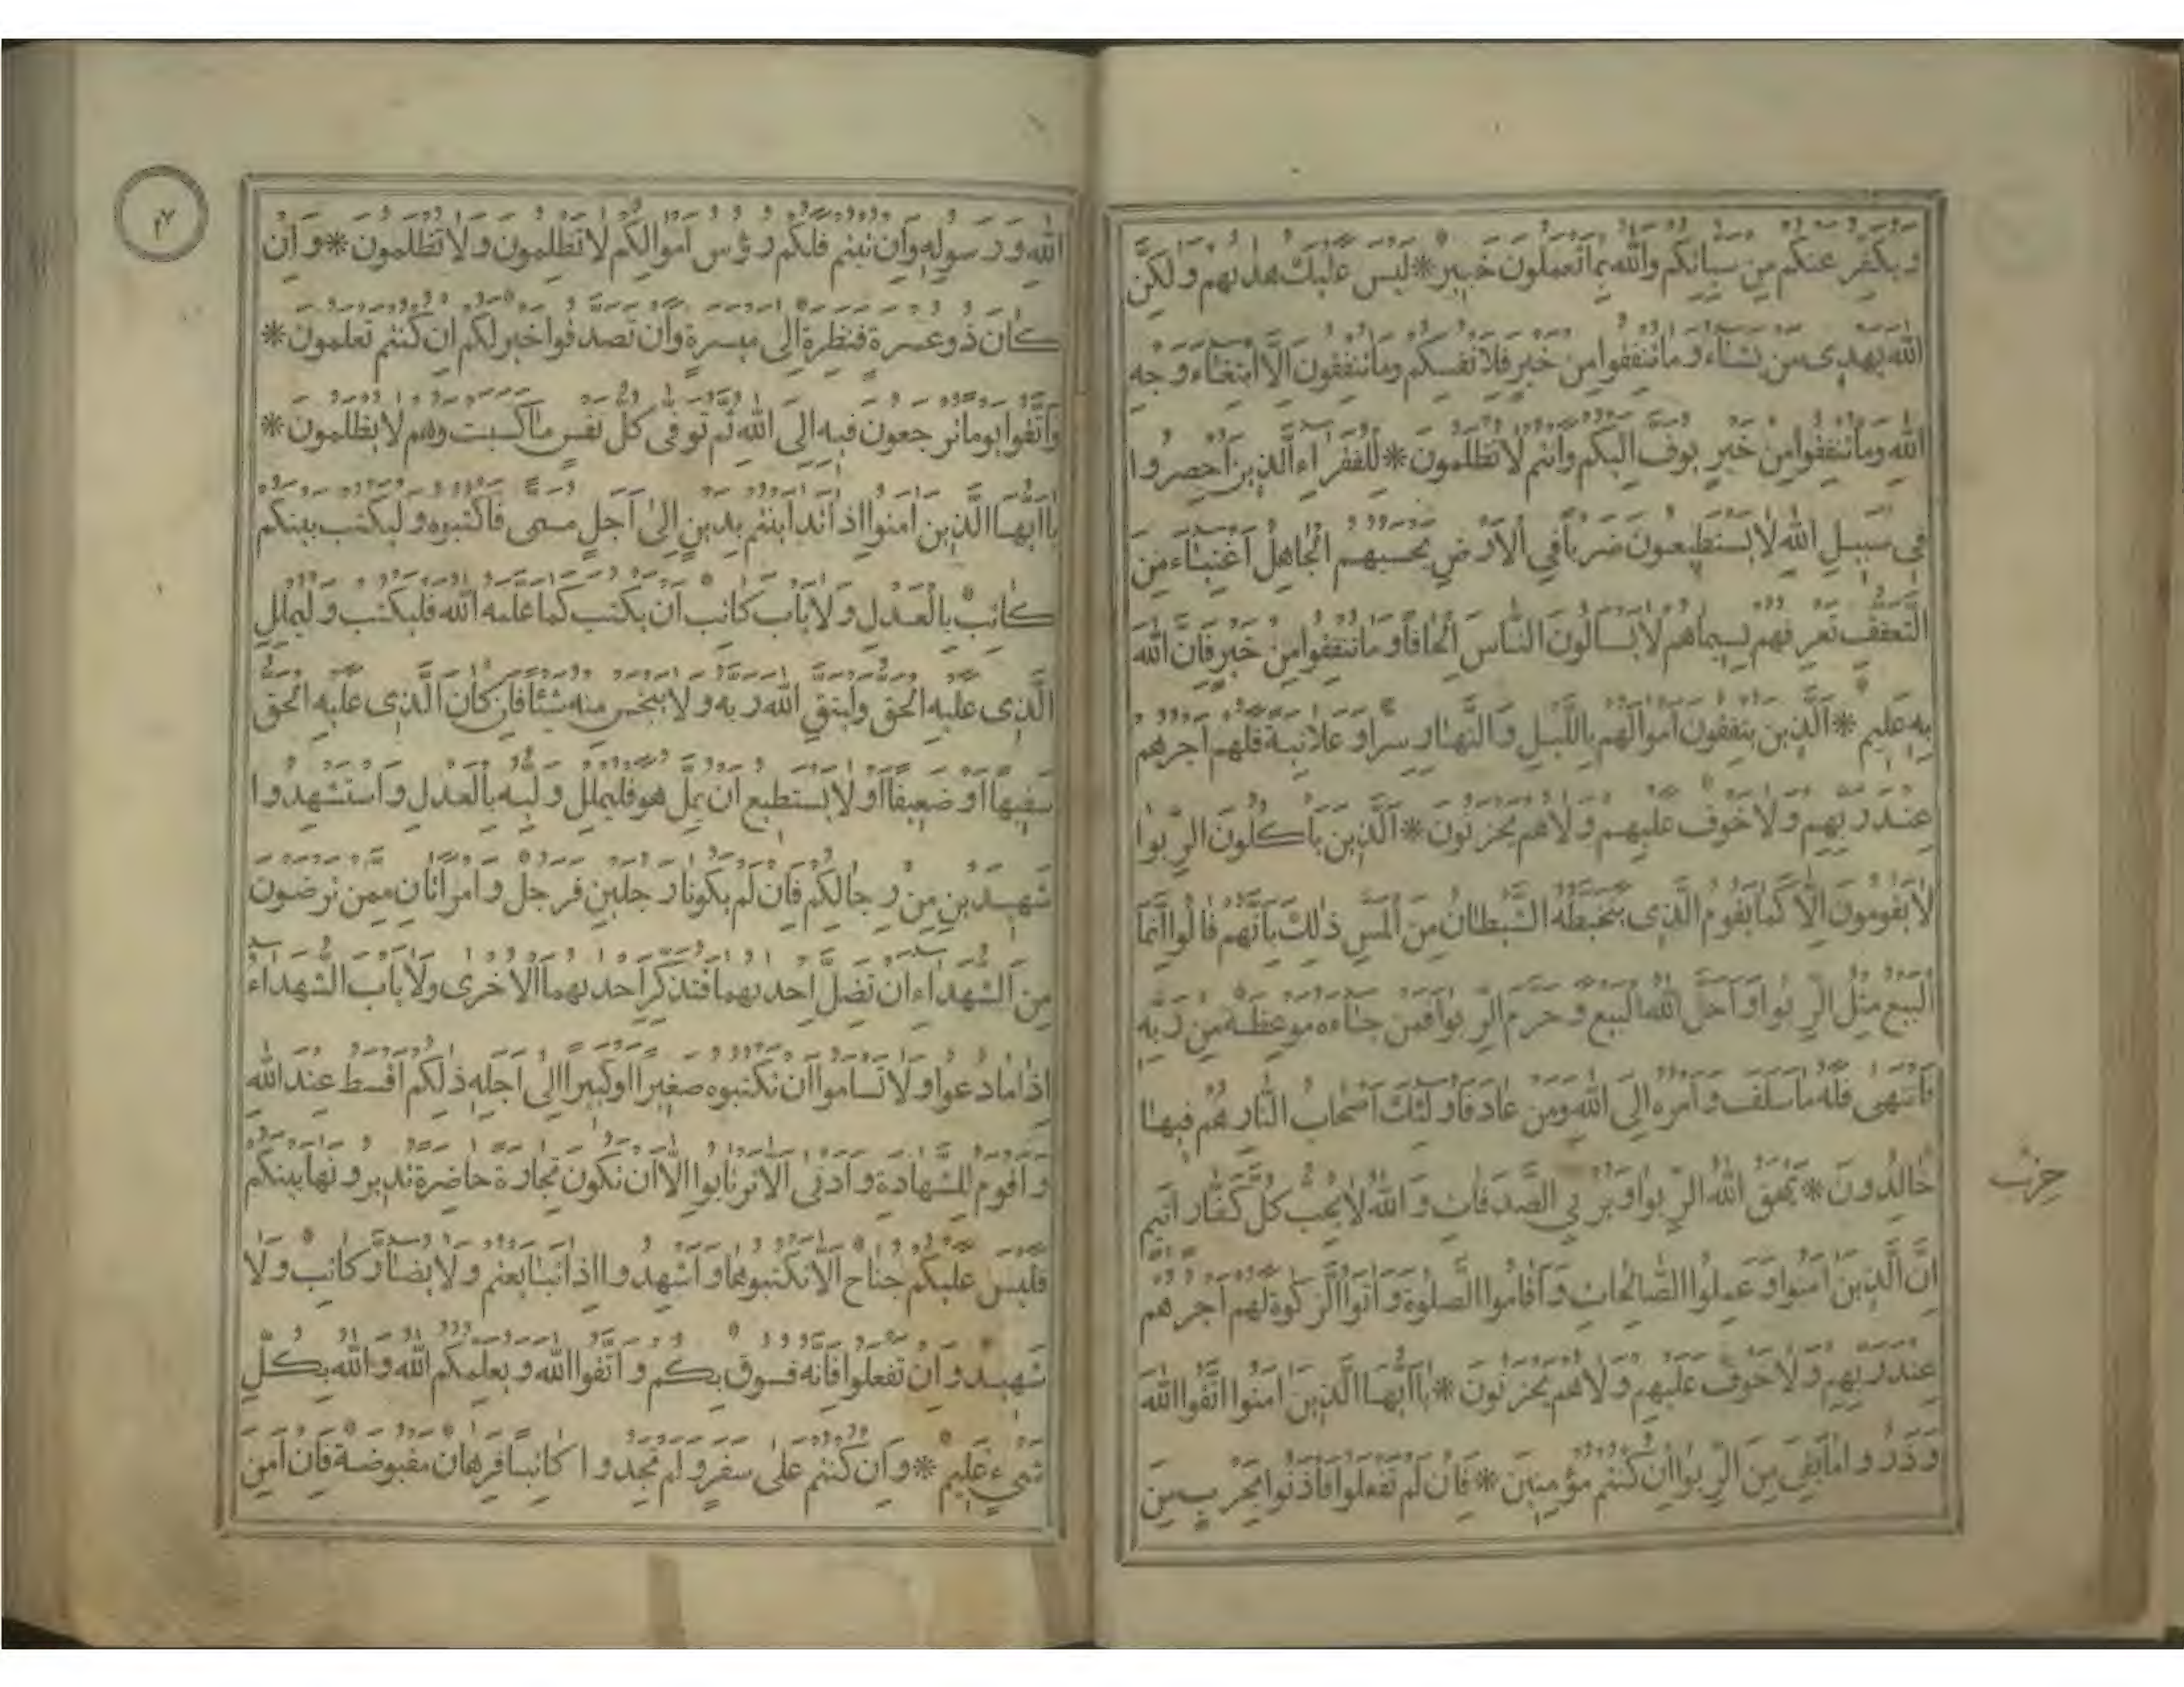 ويكفر عنكم من سياتكم والله بما تعملون خبير * ليس عليك هديهم ولكن
الله يهدى من يشاء وما تنفقوا من خير فلانفسكم وما تنفقون الا ابتغاء وجه
الله وما تنفقوا من خير يوف اليكم وانتم لا تظلمون * للفقراء الذين احصروا
فى سبيل الله لا يستطيعون ضربا في الارض يحسبهم الجاهل اغنياء من
التعفف تعرفهم بسيماهم لا يسالون الناس الحافا وما تنفقوا من خير فان الله
به عليم * الذين ينفقون اموالهم بالليل والنهار سرا وعلانية فلهم اجرهم
عند ربهم ولا خوف عليهم ولا هم يحزنون * الذين ياكلون الربوا
لا يقومون الا كما يقوم الذى يتخبطه الشيطان من المس ذلك بانهم قالوا انما
البيع مثل الربوا واحل الله البيع وحرم الربوا فمن جاءه موعظة من ربه
فانتهى فله ما سلف وامره الى الله ومن عاد فاولئك اصحاب النار هم فيها
خالدون * يمحق الله الربوا ويربي الصدقات والله لا يحب كل كفار اثيم
حزب
ان الذين امنوا وعملوا الصالحات واقاموا الصلوة واتوا الزكوة لهم اجرهم
عند ربهم ولا خوف عليهم ولا هم يحزنون * يا ايها الذين امنوا اتقوا الله
وذروا ما بقي من الربوا ان كنتم مؤمنين * فان لم تفعلوا فاذنوا بحرب من
الله ورسوله وان تبتم فلكم رؤس اموالكم لا تظلمون ولا تظلمون * وان
كان ذو عسرة فنظرة الى ميسرة وان تصدقوا خير لكم ان كنتم تعلمون *
واتقوا يوما ترجعون فيه الى الله ثم توفى كل نفس ما كسبت وهم لا يظلمون *
يا ايها الذين امنوا اذا تداينتم بدين الى اجل مسمى فاكتبوه وليكتب بينكم
كاتب بالعدل ولا ياب كاتب ان يكتب كما علمه الله فليكتب وليملل
الذى عليه الحق وليتق الله ربه ولا يبخس منه شيئا فان كان الذى عليه الحق
سفيها او ضعيفا او لا يستطيع ان يمل هو فليملل وليه بالعدل واستشهدوا
شهيدين من رجالكم فان لم يكونا رجلين فرجل وامراتان ممن ترضون
من الشهداء ان تضل احديهما فتذكر احديهما الاخرى ولا ياب الشهداء
اذا ما دعوا ولا تساموا ان تكتبوه صغيرا او كبيرا الى اجله ذلكم اقسط عند الله
واقوم للشهادة وادنى الا ترتابوا الا ان تكون تجارة حاضرة تديرونها بينكم
فليس عليكم جناح الا تكتبوها واشهدوا اذا تبايعتم ولا يضار كاتب ولا
شهيد وان تفعلوا فانه فسوق بكم واتقوا الله ويعلمكم الله والله بكل
شيء عليم * وان كنتم على سفر ولم تجدوا كاتبا فرهان مقبوضة فان امن